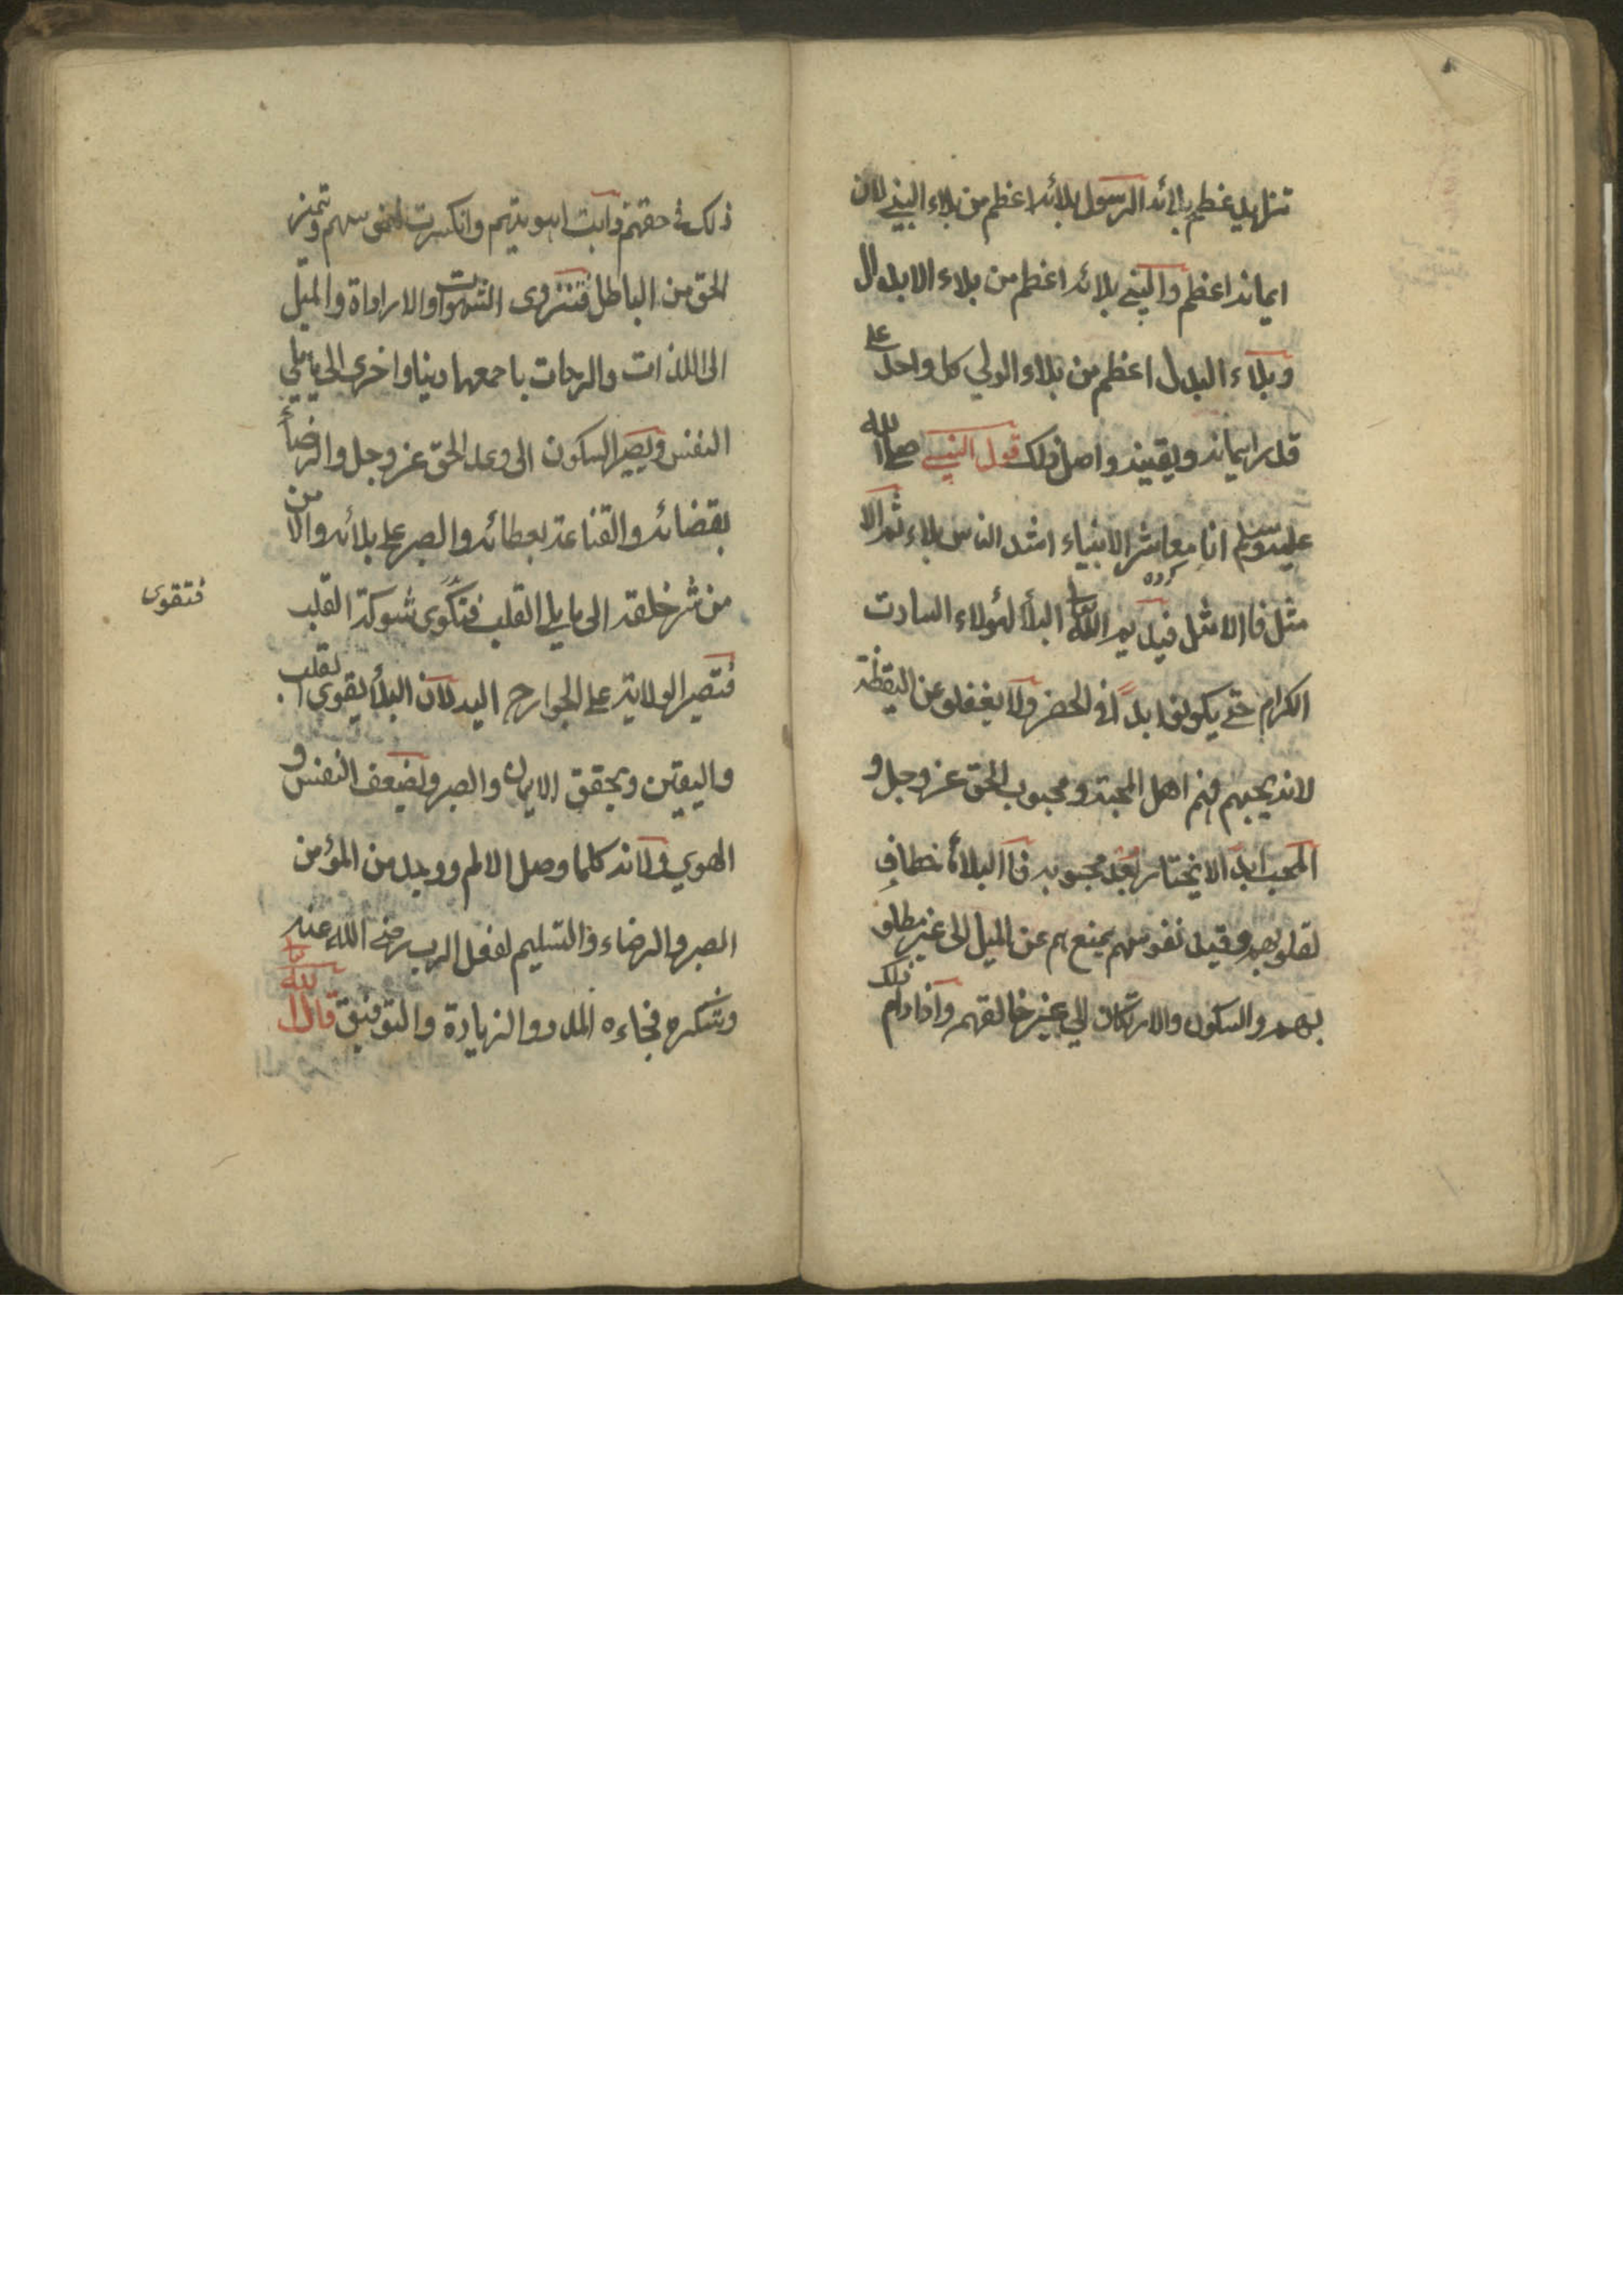 تزايد عظم بلائه الرسول بلائه اعظم من بلاء النبي لان
ايمانه اعظم والنبي بلائه اعظم من بلاء الابدال
وبلاء البدل اعظم من بلاء الولي كل واحد على
قدر ايمانه ويقينه واصل ذلك قول النبي صلى الله
عليه وسلم انا معاشر الانبياء اشد الناس بلاء ثم الا
مثل فا الامثل فيديم الله تعا البلأ لهؤلاء السادت
الكرام حتى يكونوا ابدا في الحضر ولا يغفلو عن اليقظة
لانه يحبهم فهم اهل المحبة ومحبوب الحق عز وجل و
المحب ابدا لا يختار بعد محبوبه فا البلاء خطاف
لقلوبهم وقيد نفوسهم يمنع هم عن الميل الى غير مطلو
بهم والسكون والاركان الي غير خالقهم واذا دام ذلك
ذلك في حقهم ذابت اهويتهم وانكسرت نفوسهم وتميز
الحق من الباطل فتنزوى الشهوات والاراداة والميل
الى اللذات والرحات باجمعها دينا واخرى الى ما يلي
النفس ويصير السكون الى وعد الحق عز وجل والرضأ
بقضائه والقناعة بعطائه والصبر على بلائه والامن
من شر خلقه الى ما يلي القلب فتكوى شوكة القلب
فتقوى
فتصير الولاية على الجوارح اليه لان البلأ يقوى القلب
واليقين ويحقق الايمان والصبر ويضعف النفس و
الهوي ولانه كلما وصل الالم ووجد من المؤمن
الصبر والرضاء والتسليم لفعل الرب رضي الله عنه
وشكره فجاءه المدد والزيادة والتوفيق قال الله تعا